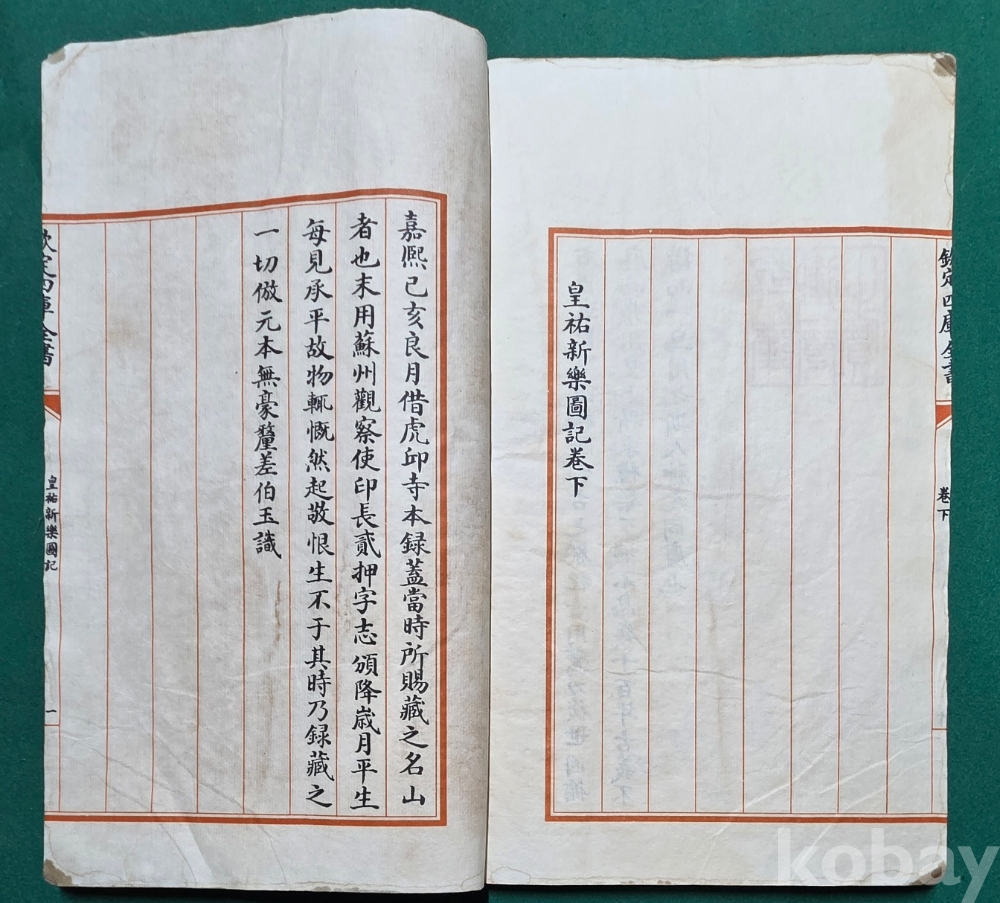 欽定四庫全書
卷下
皇祐新樂圖記卷下
嘉熙己亥良月借虎邱寺本録蓋當時所賜藏之名山
者也末用蘇州觀察使印長貳押字志頒降歳月平生
每見承平故物輒慨然起敬恨生不于其時乃録藏之
一切倣元本無豪釐差伯玉識
欽定四庫全書
皇祐新樂圖記
一
kobay